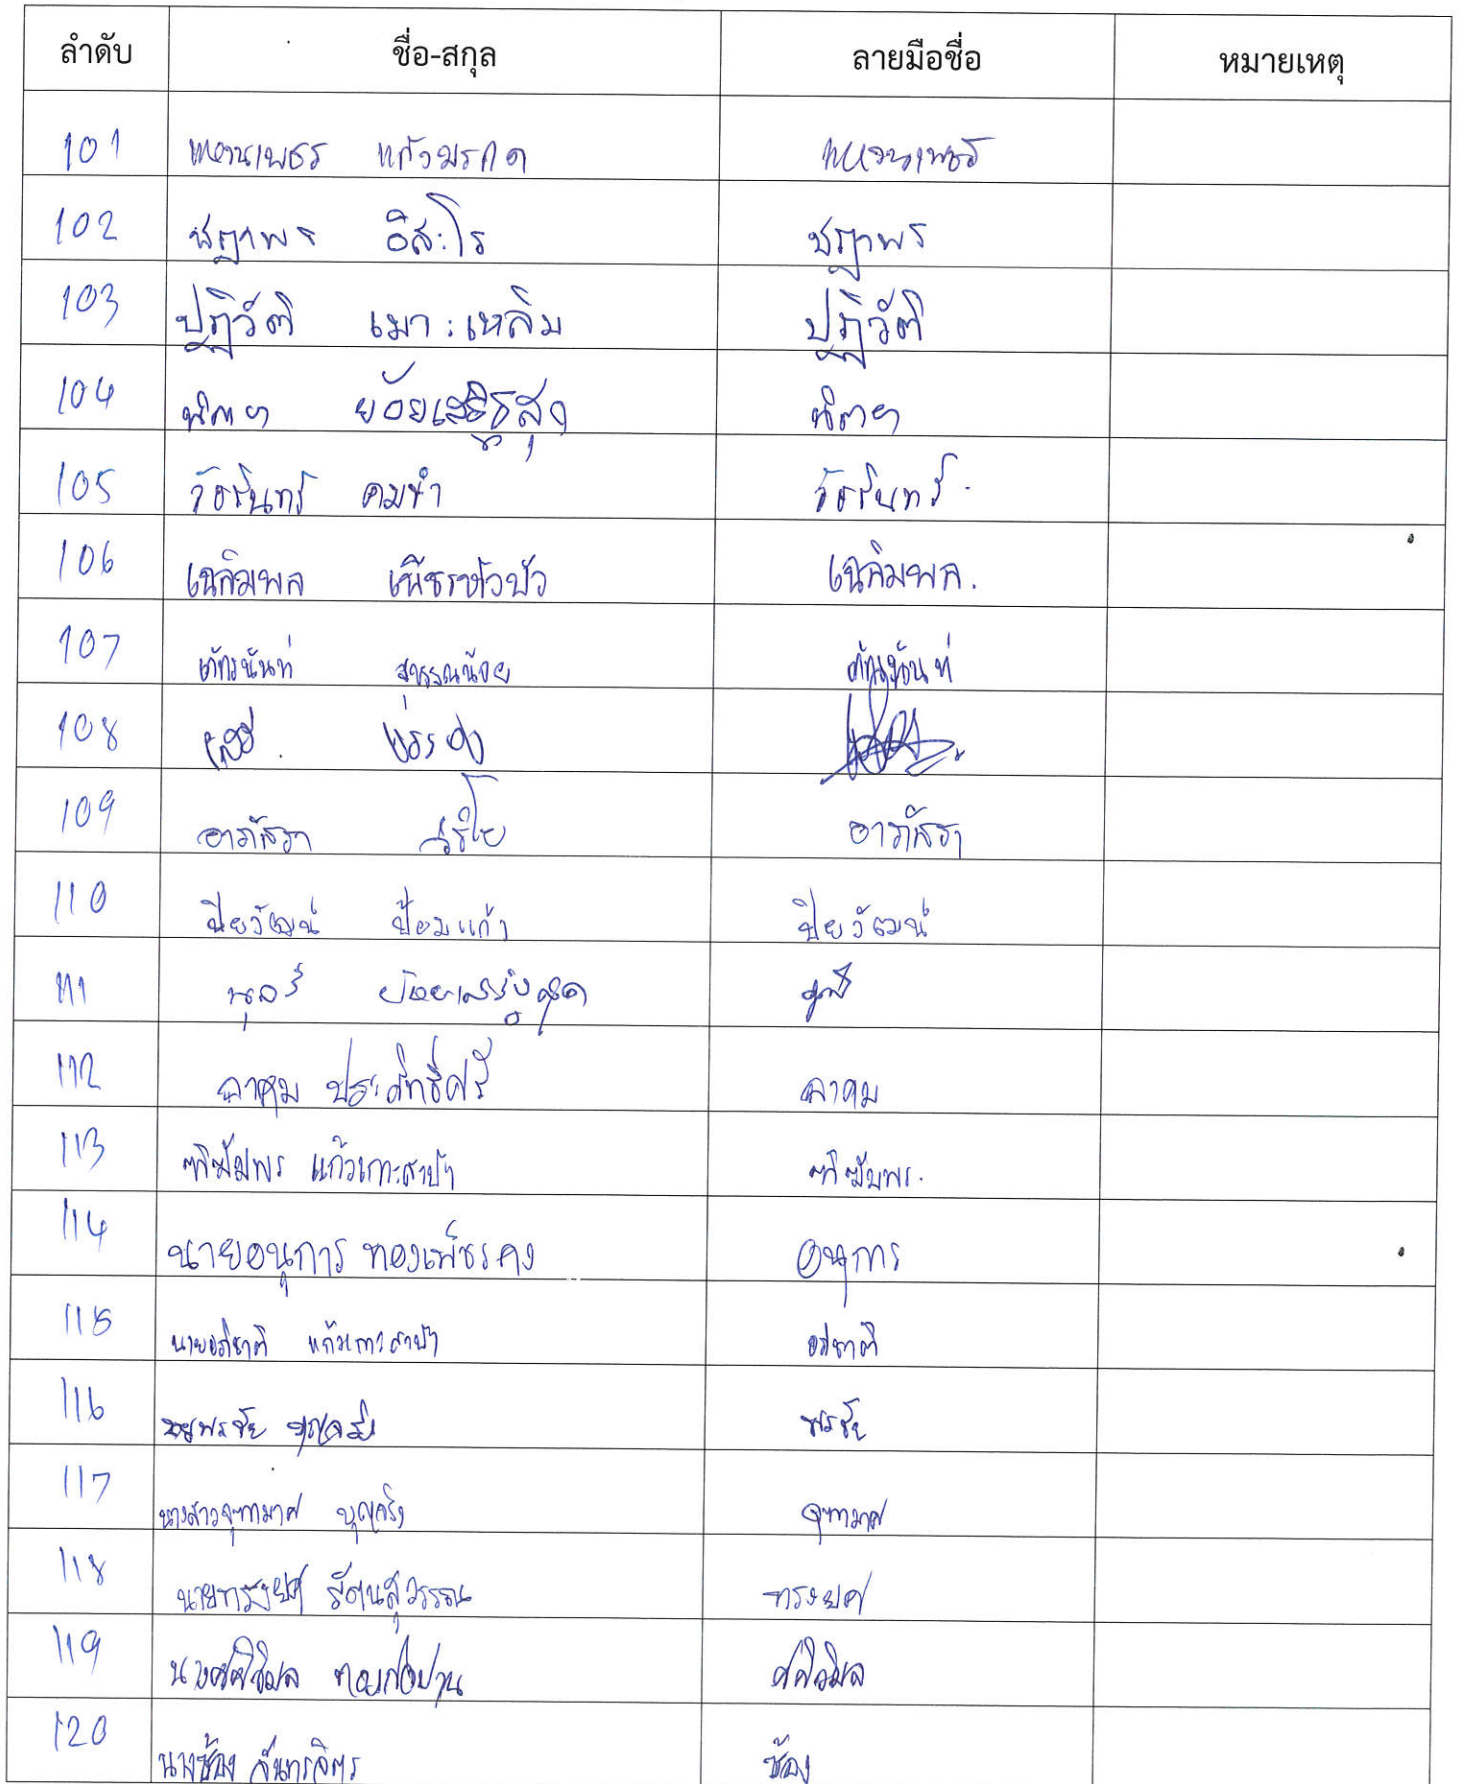 ลำดับ ชื่อ-สกุล ลายมือชื่อ หมายเหตุ
101 แหวนเพชร แก้วมรกต แหวนเพชร
102 ชฎาพร อิสะโร ชฎาพร
103 ปฏิวัติ เมาะเหลิม ปฏิวัติ
104
105 วัชรินทร์ คมขำ วัชรินทร์
106 เฉลิมพล เพ็ชรหัวบัว เฉลิมพล.
107 ภัทรนันท์ สุวรรณน้อย ภัทรนันท์
108
109 อาภัสรา อาภัสรา
110 ปิยวัฒน์ ป้อมแก้ว ปิยวัฒน์
111
112 อาคม ประสิทธิ์ศรี อาคม
113 ทิฆัมพร แก้วเกาะสะบ้า ทิฆัมพร.
114 นายอนุการ ทองเพ็ชรคง อนุการ
115 นายอภิชาติ แก้วเกาะสะบ้า อภิชาติ
116 พรชัย บุญจริง พรชัย
117 นางสาวจุฑามาศ บุญจริง จุฑามาศ
118 นายทรงยศ รัตนสุวรรณ ทรงยศ
119 นางศศิวิมล ศศิวิมล
120 นางช้อง จันทรจิตร ช้อง